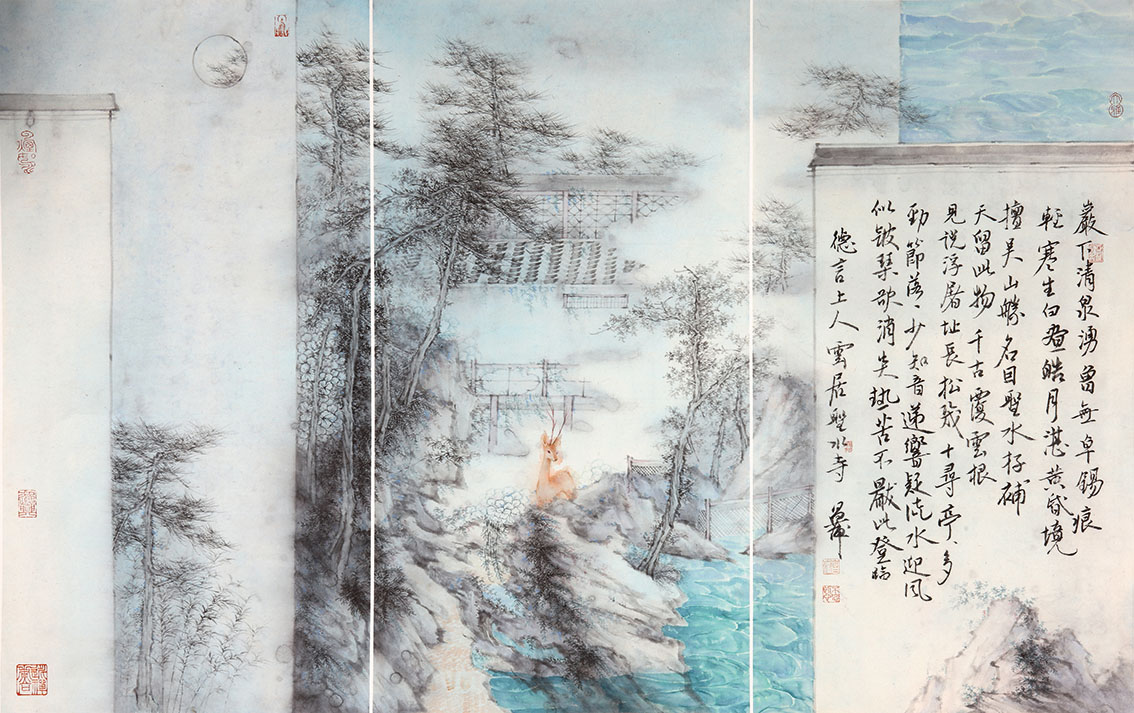 巖下清泉湧曾無卓錫痕
輕寒生白晝皓月湛黃昏境
擅吳山勝名因聖水存補
天留此物千古覆雲根
見說浮屠址長松幾十尋亭、多
勁節落、少知音遞響疑流水迎風
似鼓琴欲消炎熱苦不厭此登臨
德言上人雲居聖水寺